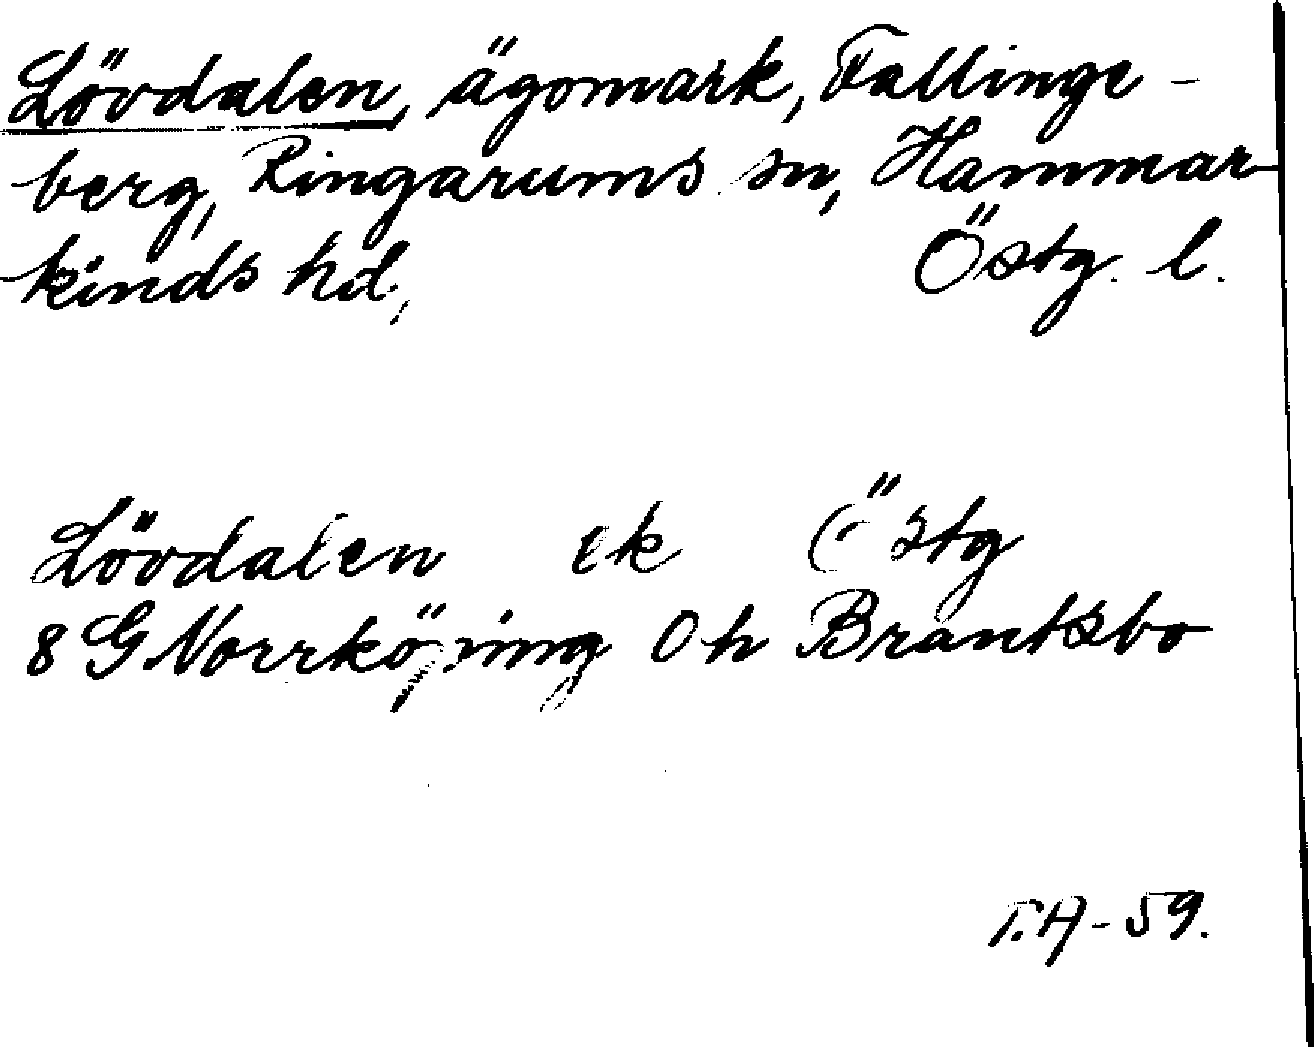 Lövdalen, ägomark, Fallinge-
berg, Ringarums sn, Hammar-
kinds hd, Östg. l.
Lövdalen ek Östg
8 G Norrköping 0 h Brantsbo
T.H-59.